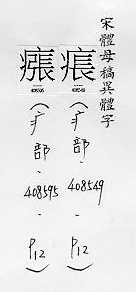 宋體母稿異體字
痮
(疒部-408549-P12)
瘬
(疒部-408595-P12)